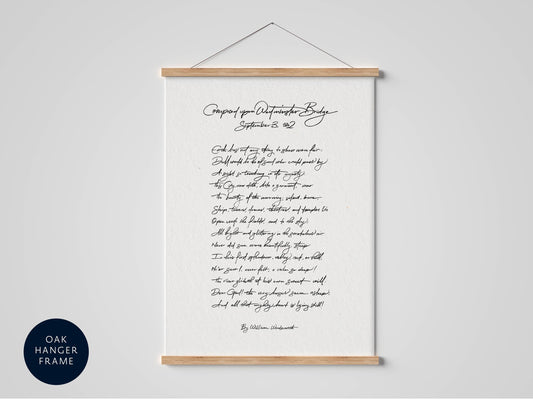 Composed upon Westminster Bridge
September 3, 1802
Earth has not any thing to show more fair:
Dull would he be of soul who could pass by
A sight so touching in its majesty:
This City now doth, like a garment, wear
The beauty of the morning; silent, bare,
Ships, towers, domes, theatres and temples lie
Open unto the fields, and to the sky;
All bright and glittering in the smokeless air.
Never did sun more beautifully steep
In his first splendour, valley, rock, or hill;
Ne'er saw I, never felt, a calm so deep!
The river glideth at his own sweet will:
Dear God! the very houses seem asleep;
And all that mighty heart is lying still!
By William Wordsworth
OAK
HANGER
FRAME